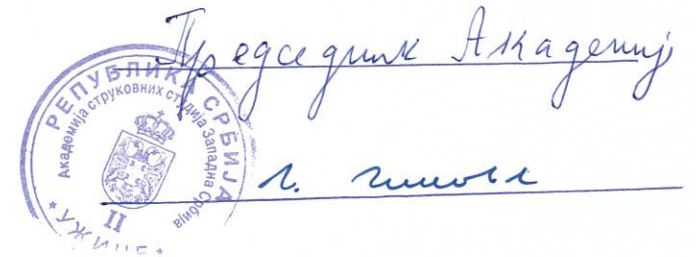 Председник Академије
РЕПУБЛИКА СРБИЈА
Академија струковних студија Западна Србија
II
* УЖИЦЕ *